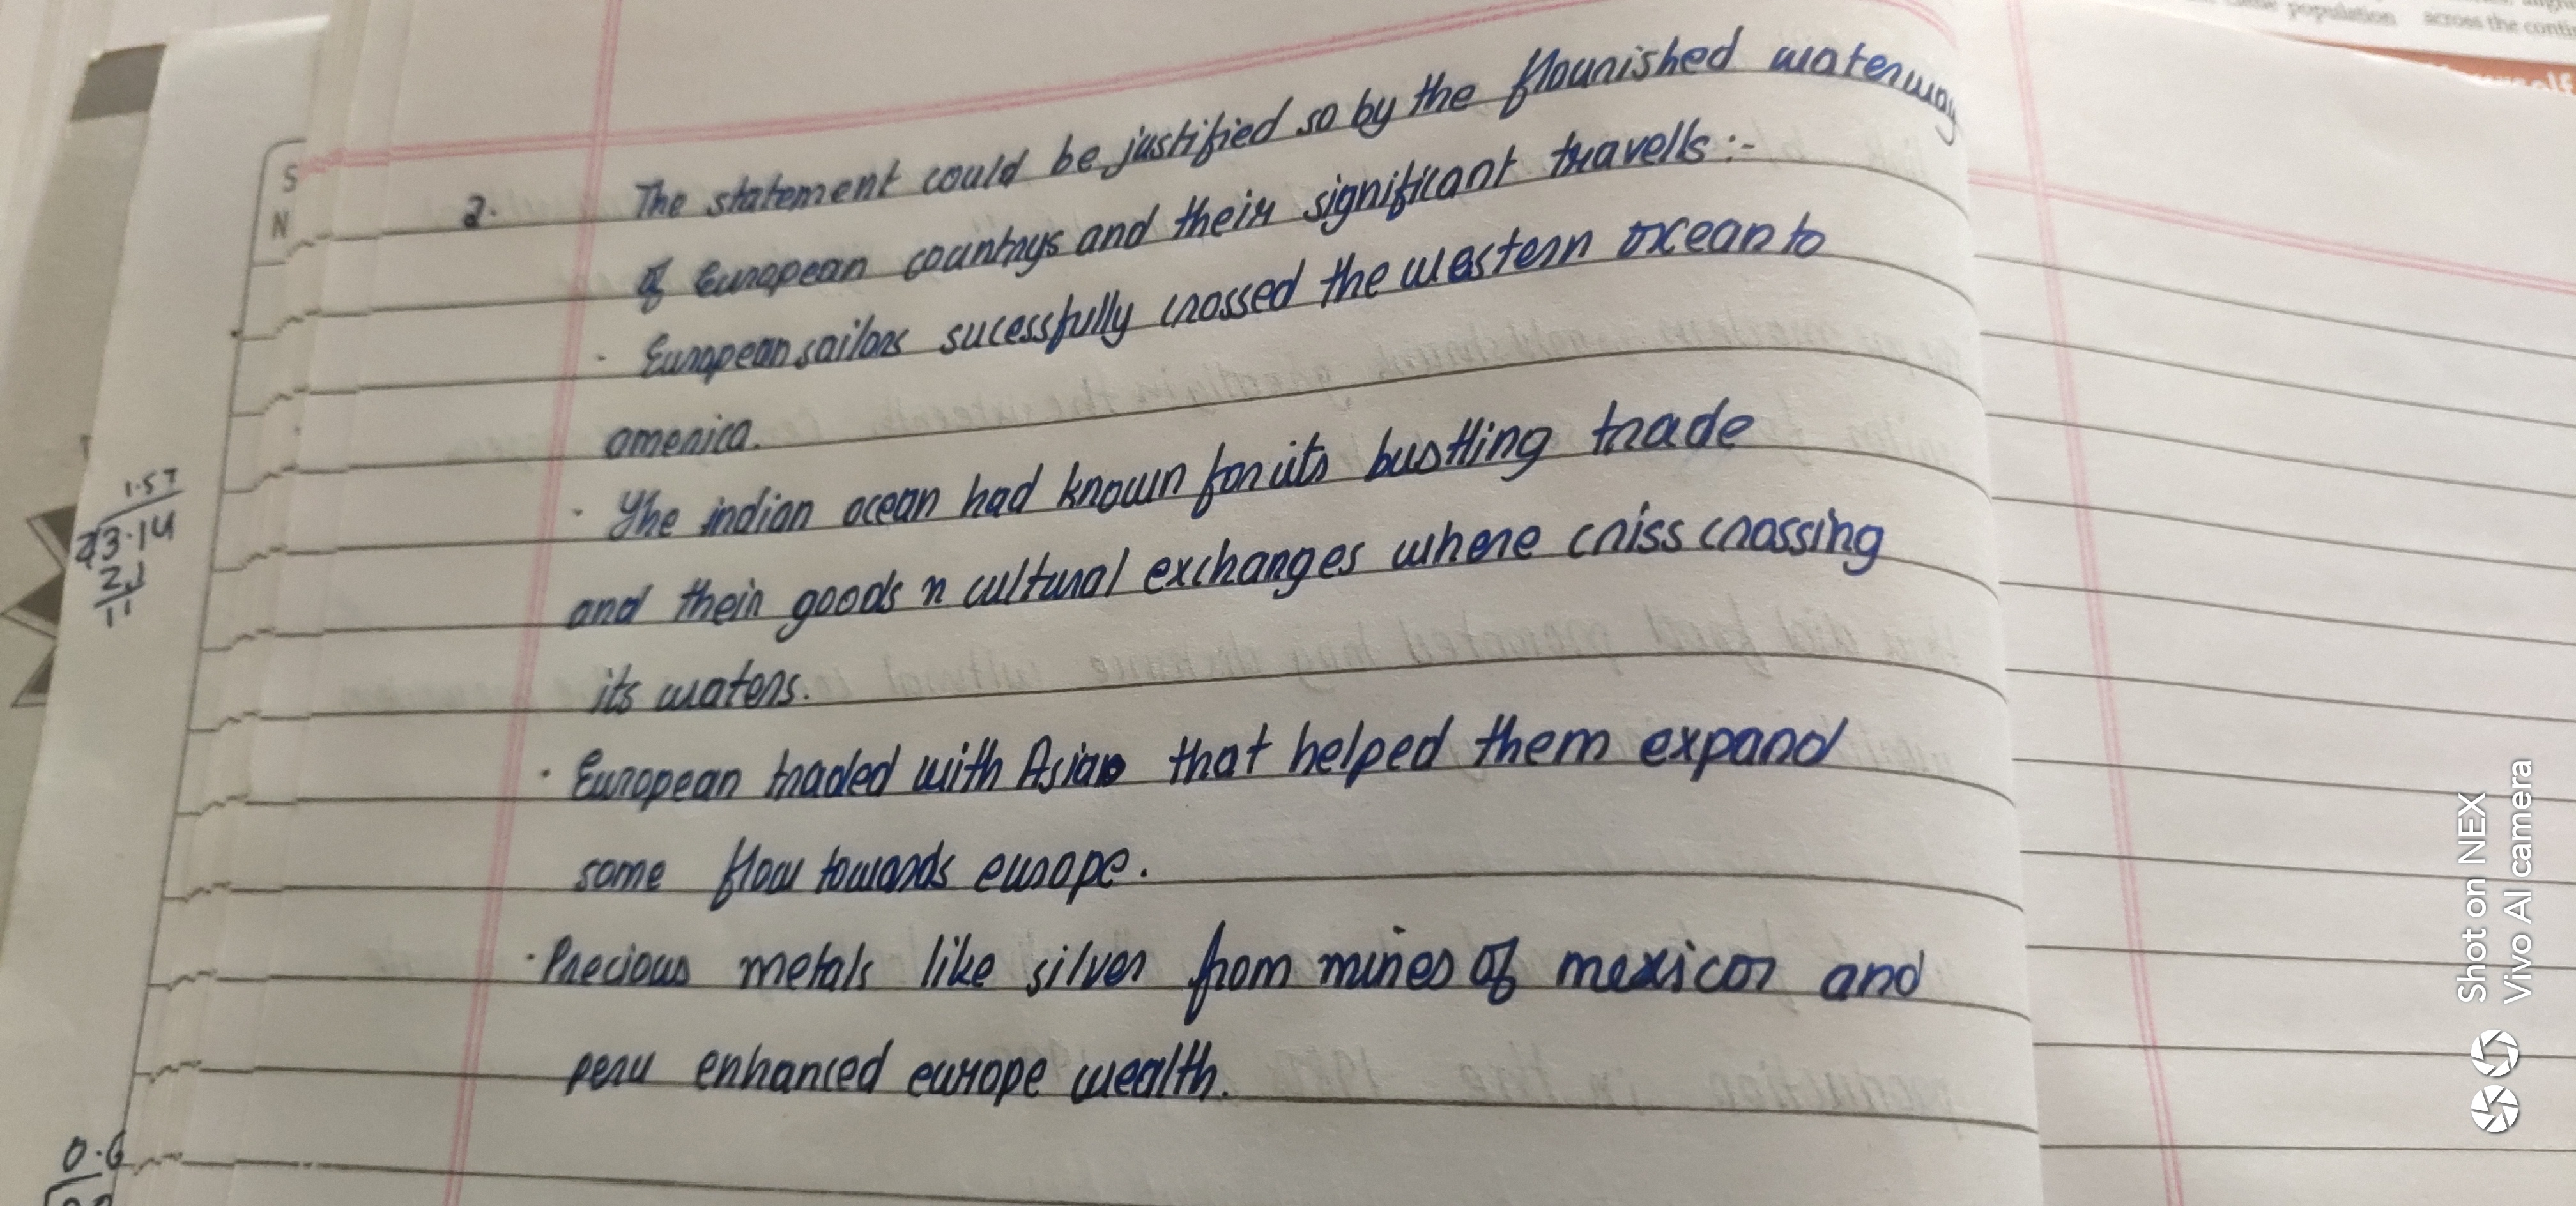 2. The statement could be justified so by the flourished waterway
of European countrys and their significant travells :-
· European sailors sucessfully crossed the western ocean to
america.
· The indian ocean had known for its bustling trade
and their goods n cultural exchanges where criss crossing
its waters.
· European traded with Asian that helped them expand
some flow towards europe.
· Precious metals like silver from mines of mexicor and
peru enhanced europe wealth.
S
N
1.57
2 3.14
2↓
11
0.6
population across the conti
Shot on NEX
Vivo AI camera